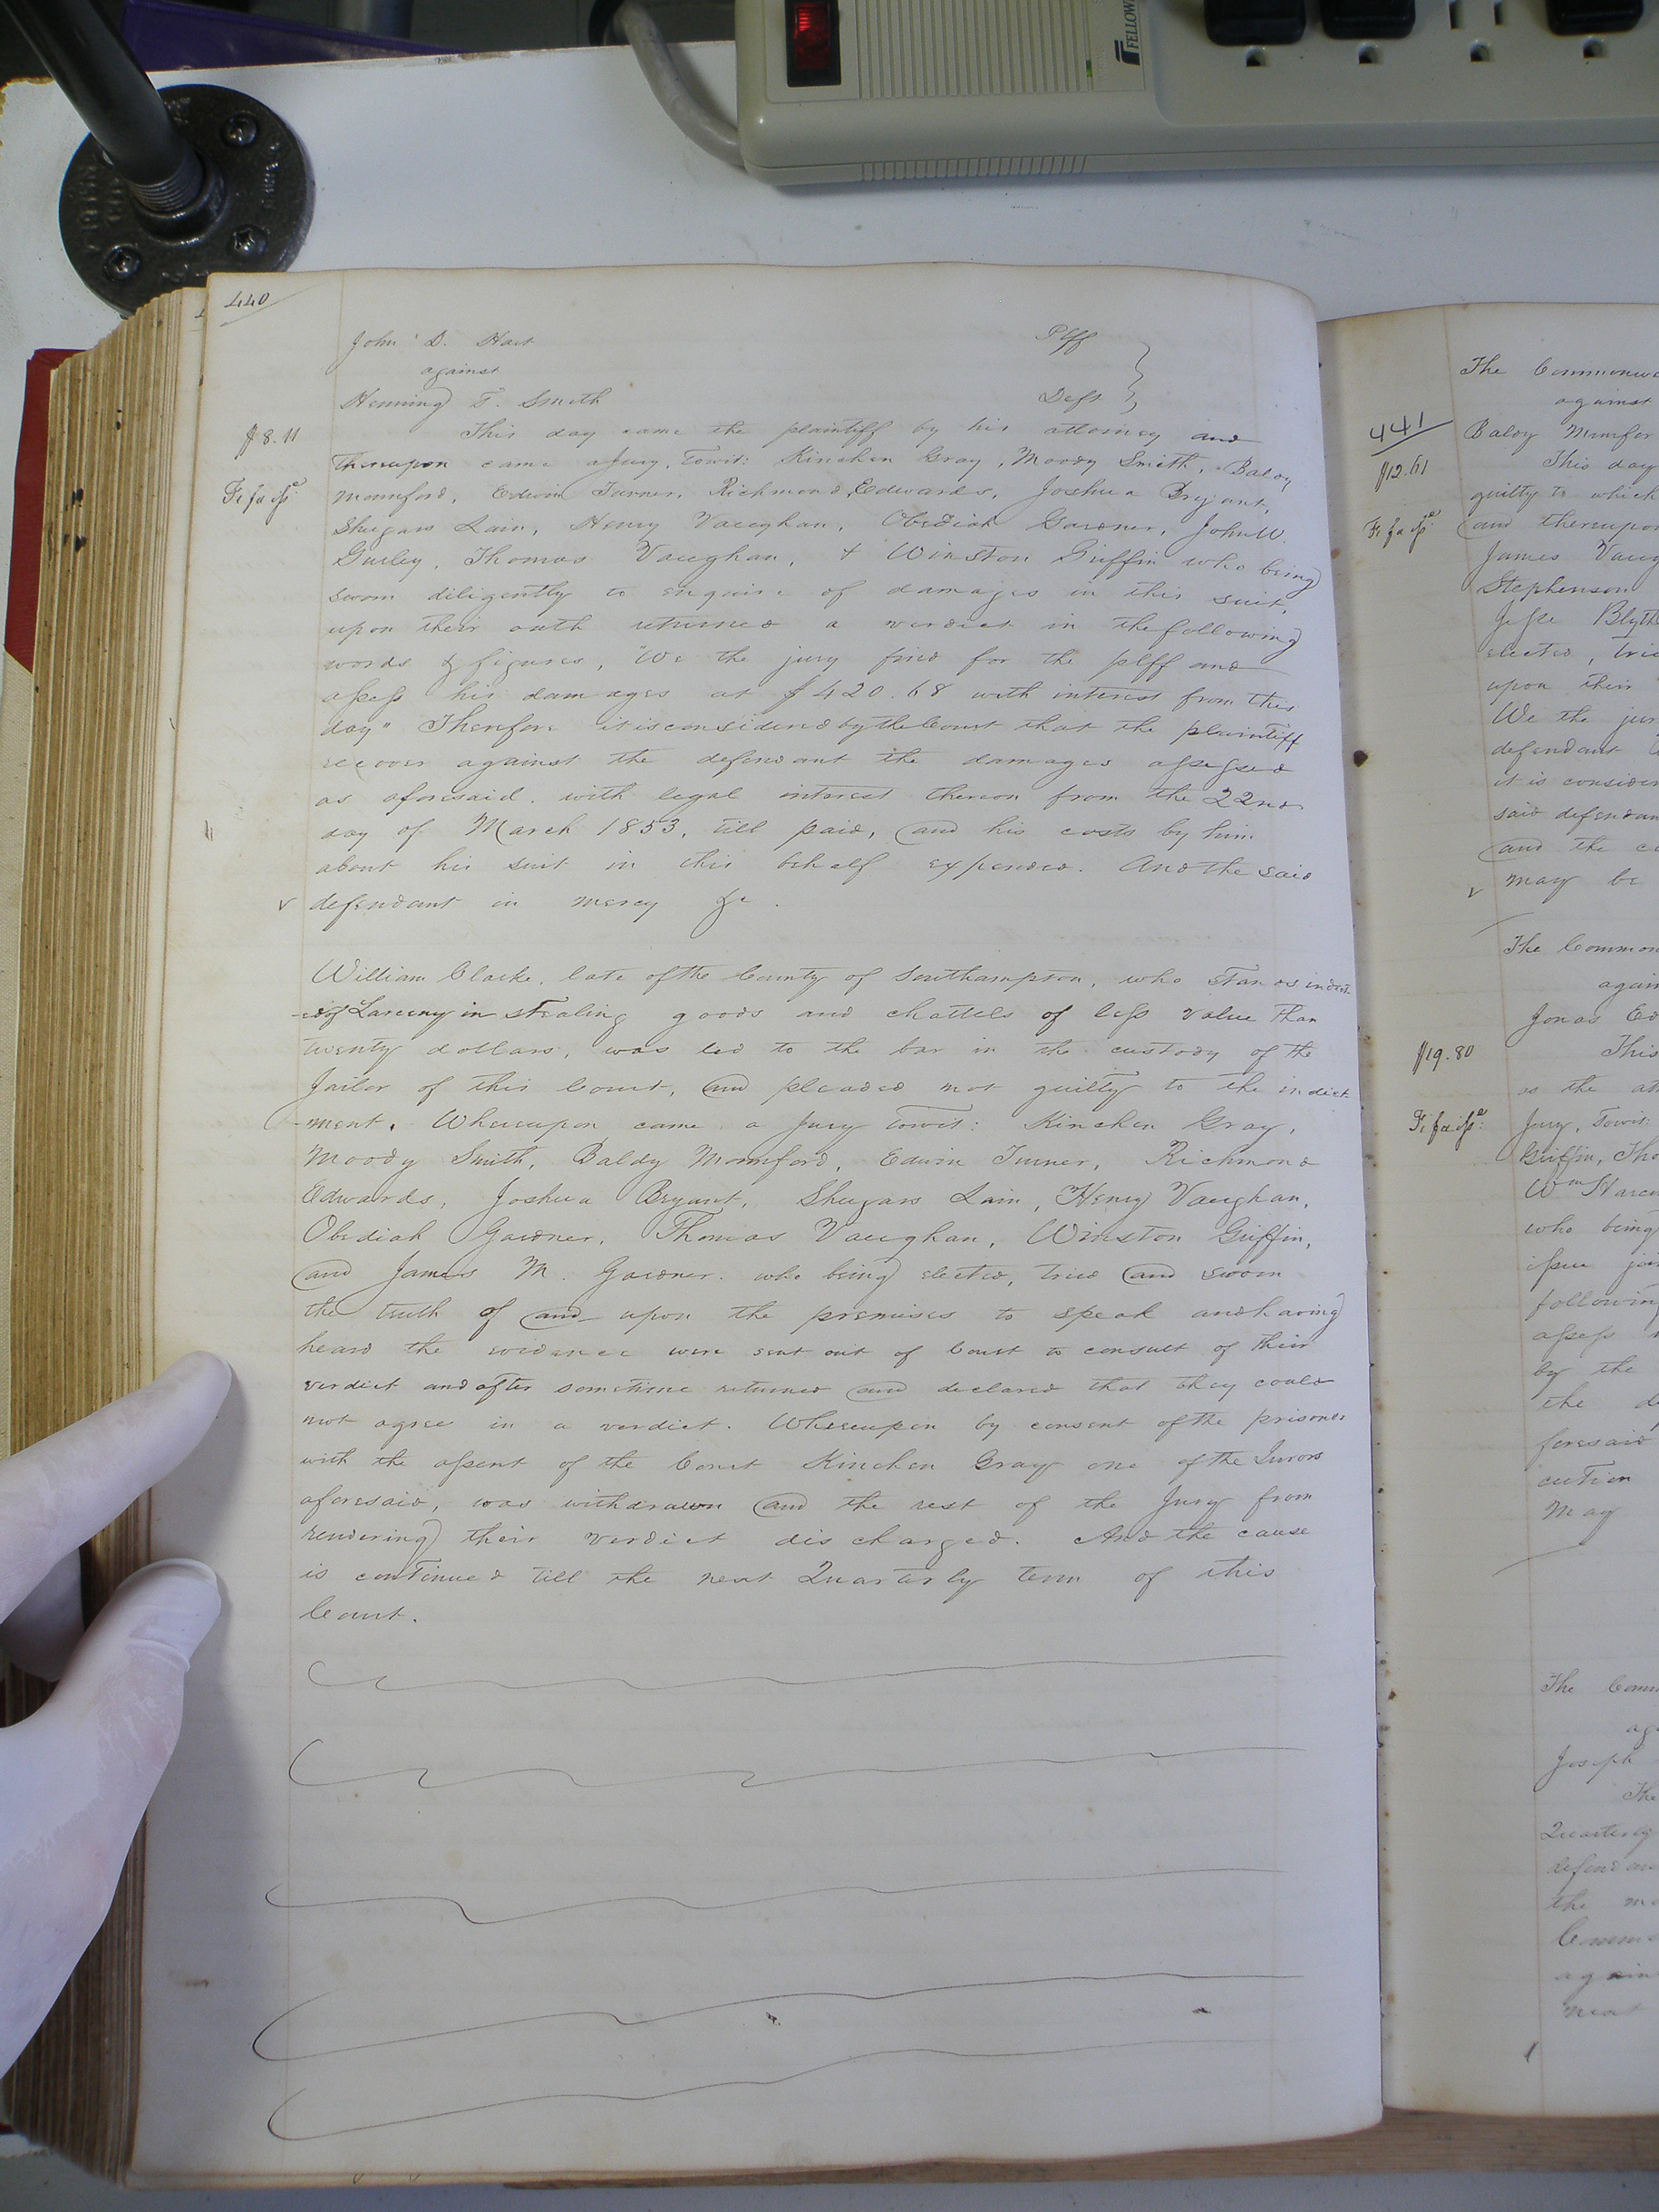 FELLOW
440
John D. Hart Plff
against
Henning T. Smith Deft
$8.11
This day came the plaintiff by his attorney and
thereupon came a Jury, Towit: Kinchen Gray, Moody Smith, Baldy
Fi fa
Mounford, Edwin Turner, Richmond Edwards, Joshua Bryant,
Shugars Lain, Henry Vaughan, Obediah Gardner, John W.
Gurley, Thomas Vaughan, & Winston Griffin who being
sworn diligently to enquire of damages in this suit,
upon their oath returned a verdict in the following
words & figures, "We the jury find for the plff and
assess his damages at $420.68 with interest from this
day" Therefore it is considered by the Court that the plaintiff
recover against the defendant the damages assessed
as aforesaid, with legal interest thereon from the 22nd
day of March 1853, till paid, and his costs by him
about his suit in this behalf expended. And the said
defendant in mercy &c.
William Clarke, late of the County of Southampton, who stands indict
-ed of Larceny in stealing goods and chattels of less value than
twenty dollars, was led to the bar in the custody of the
Jailor of this Court, and pleaded not guilty to the indict
-ment. Whereupon came a Jury towit: Kinchen Gray,
Moody Smith, Baldy Mounford, Edwin Turner, Richmond
Edwards, Joshua Bryant, Shugars Lain, Henry Vaughan,
Obediah Gardner, Thomas Vaughan, Winston Griffin,
and James M. Gardner. who being elected, tried and sworn
the truth of and upon the premises to speak and having
heard the evidence were sent out of Court to consult of their
verdict and after sometime returned and declared that they could
not agree in a verdict. Whereupon by consent of the prisoner
with the assent of the Court Kinchen Gray one of the Jurors
aforesaid, was withdrawn and the rest of the Jury from
rendering their verdict discharged. And the cause
is continued till the next Quarterly term of this
Court.
441
The Commonwe
against
Baldy Munfor
$12.61
This day
guilty to which
Fi fa
and thereupon
James Vaug
Stephenson
Jesse Blyth
elected, tri
upon their
We the jur
defendant
it is consider
said defendan
and the co
may be
The Common
again
Jonas Ed
$19.80
This
as the att
Fi fa
Jury, Towit:
Griffin, Tho
Wm
who being
issue join
following
assess
by the
the d
foresaid
cution
May
The Comm
ag
Joseph
The
Quarterly
defendan
the mo
Comm
again
next